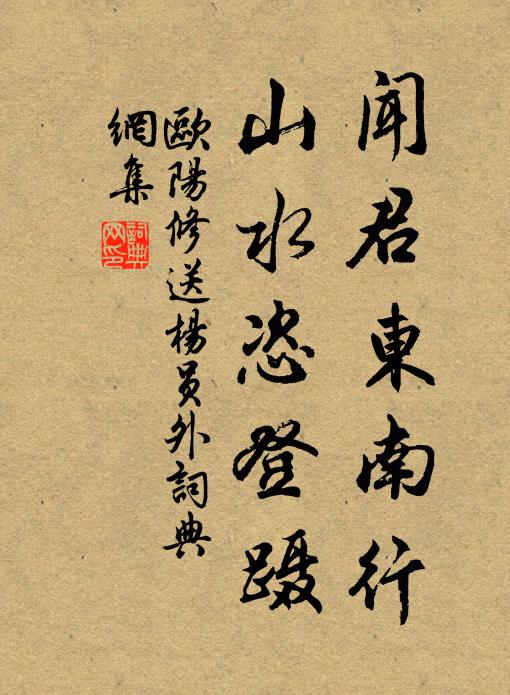 闻君東南行
山水恣登蹑
歐陽修送楊員外詞典
網集
詞典
网印